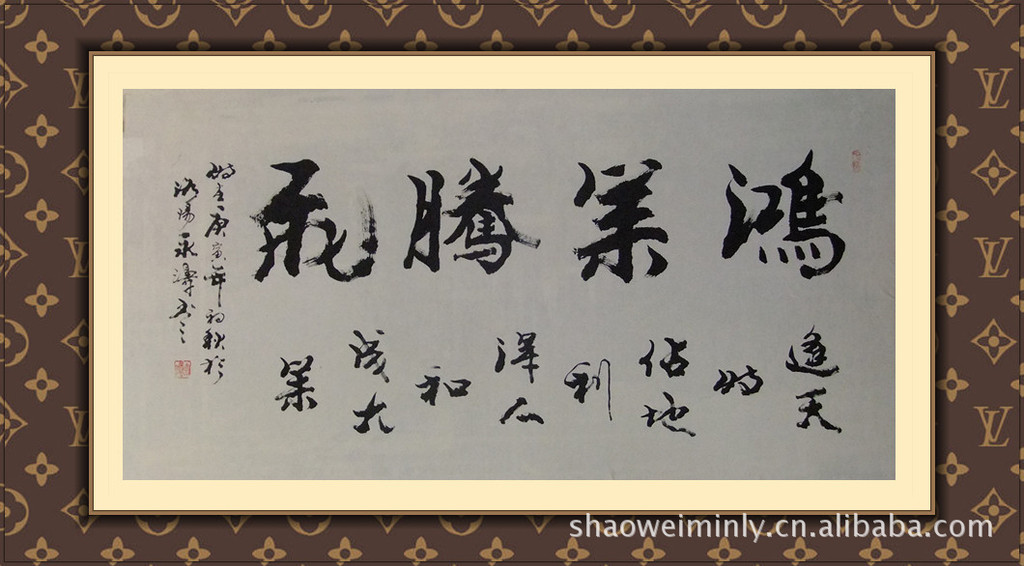 鴻業騰飛
逢天
時
佔地
利
得人
和
成大
業
時在庚寅年初秋於
洛陽永濤書之
shaoweiminly.cn.alibaba.com